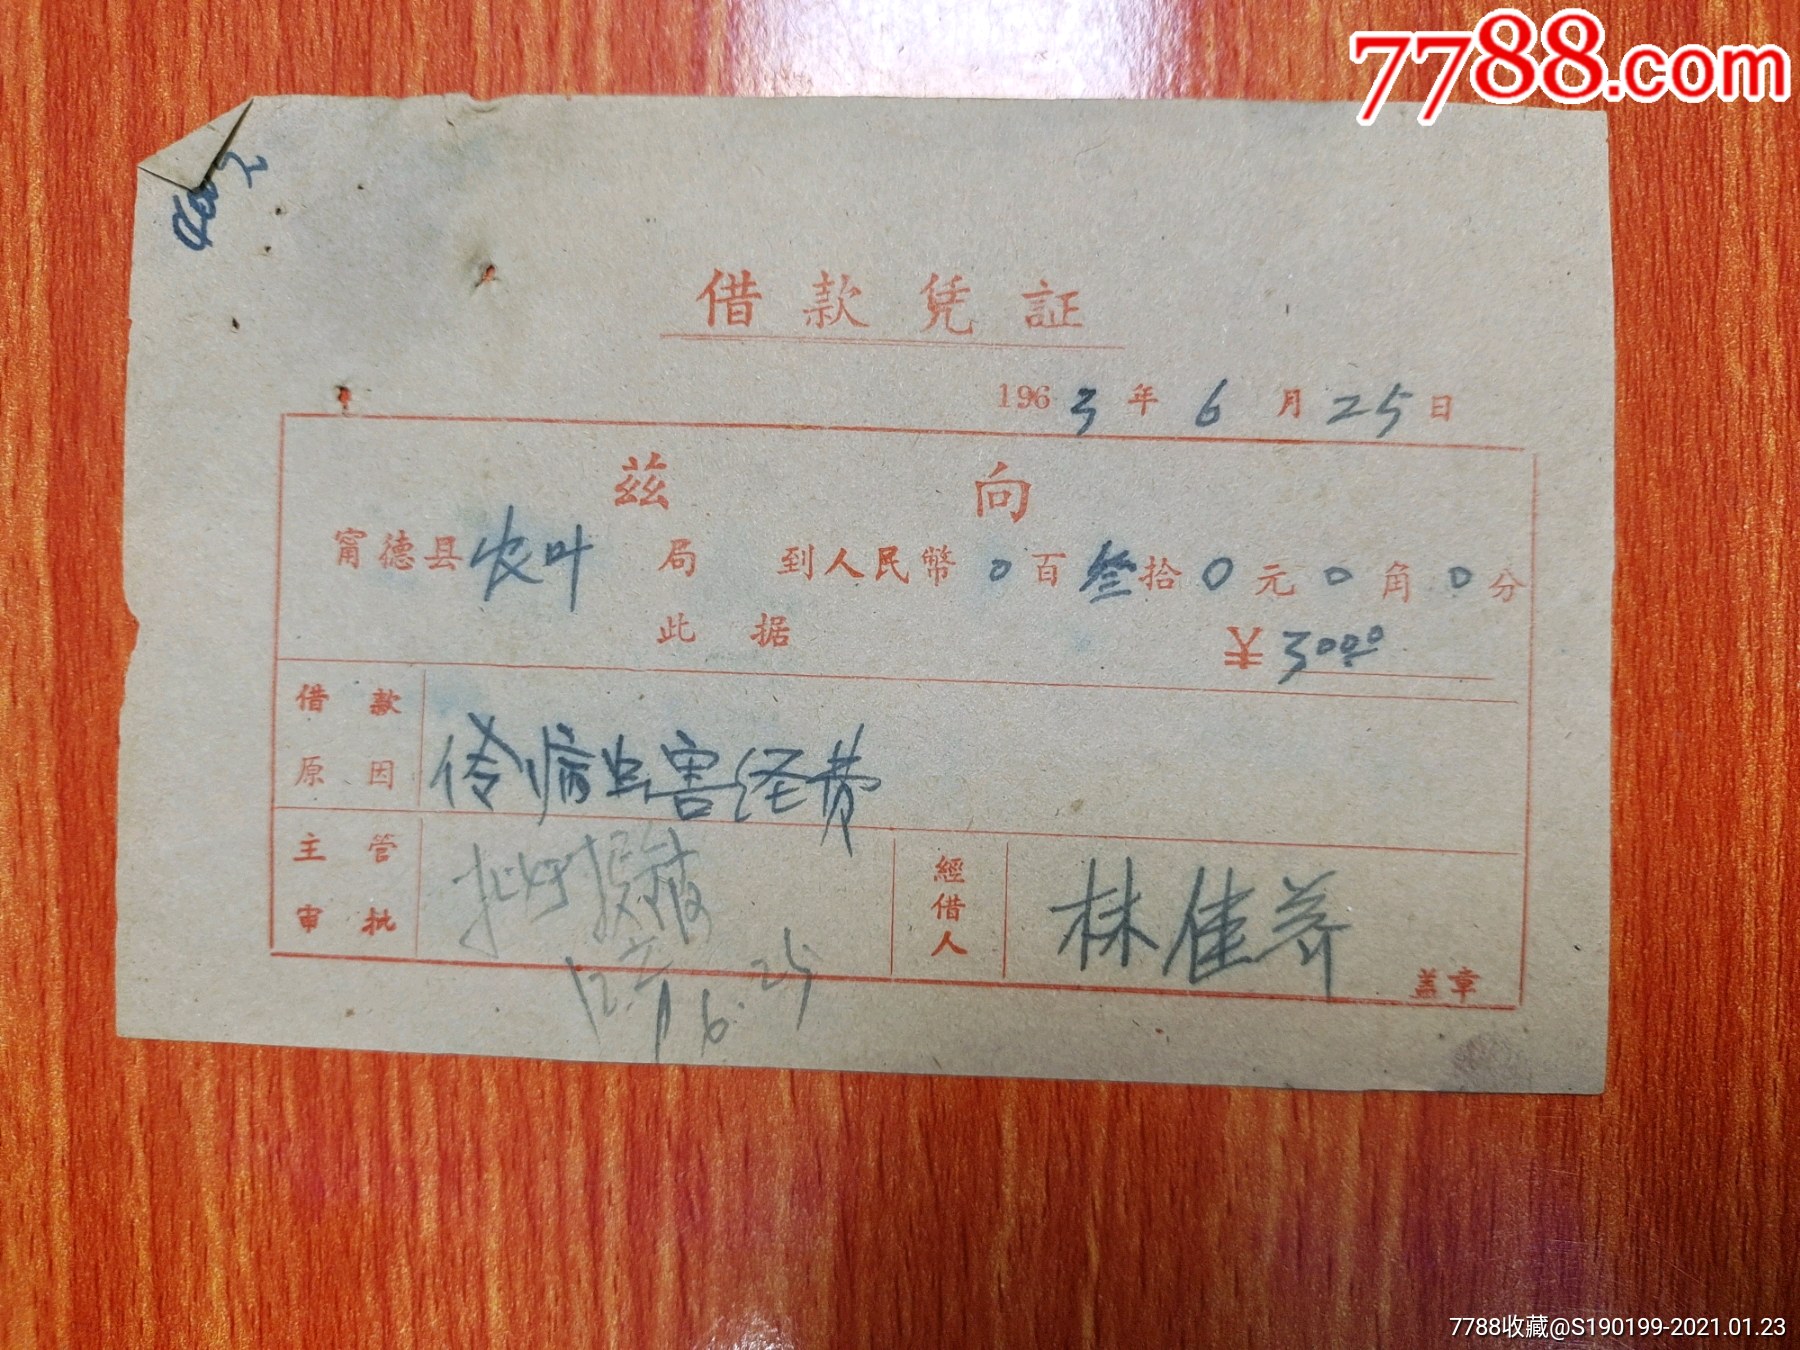 7788.com
借款凭証
1963年6月25日
茲 向
甯德县农叶局 到人民幣0百叁拾0元0角0分
此据
¥3000
借款原因 病虫害经费
主管审批
6.25
經借人 林佳养
盖章
7788收藏@S190199-2021.01.23